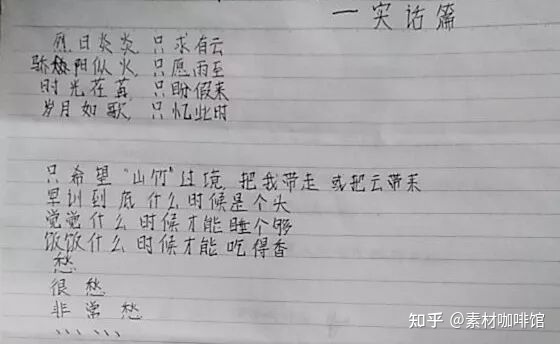 一实话篇
烈日炎炎,只求有云
骄阳似火,只愿雨至
时光荏苒,只盼假来
岁月如歌,只忆此时
只希望“山竹”过境,把我带走或把云带来
早训到底什么时候是个头
觉觉什么时候才能睡个够
饭饭什么时候才能吃得香
愁
很愁
非常愁
、、、、、、
知乎 @素材咖啡馆